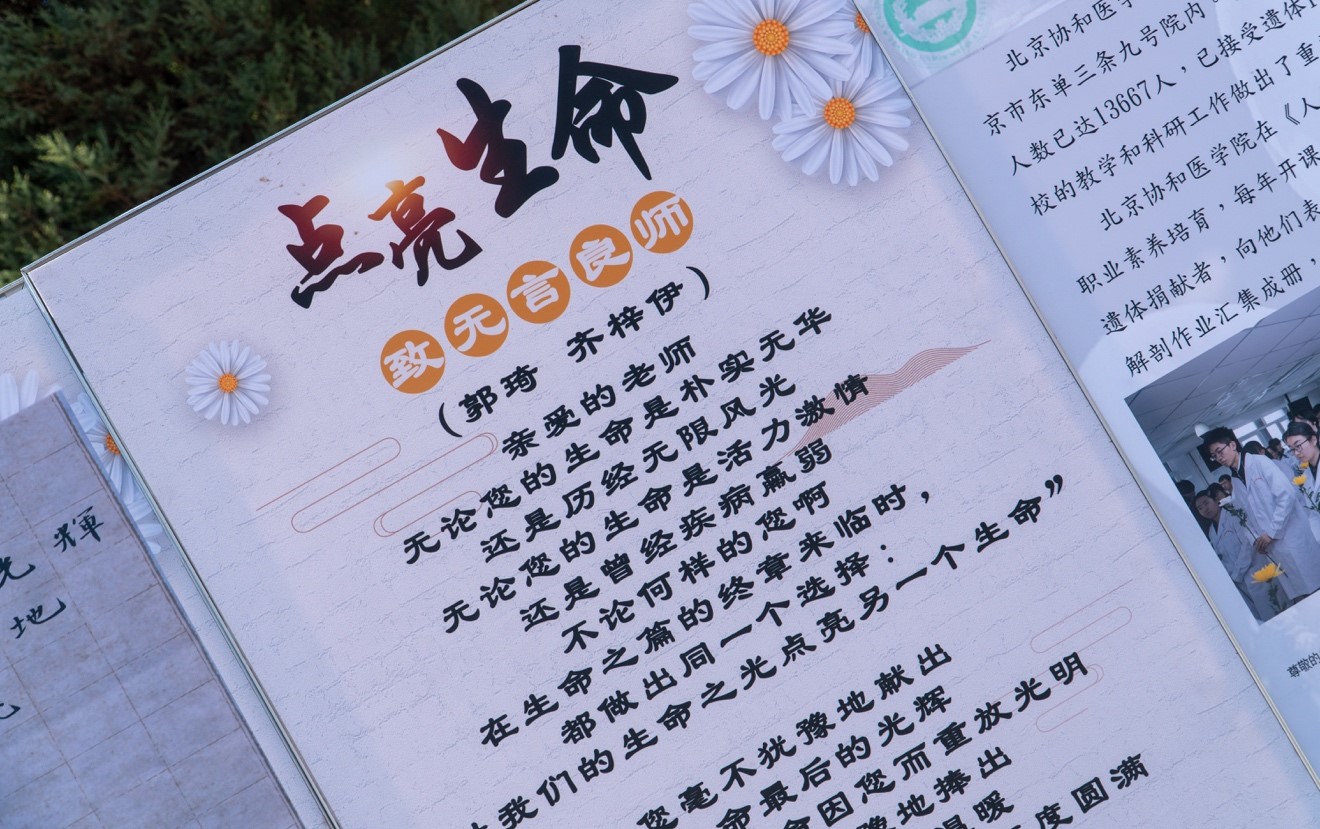 点亮生命
致无言良师
（郭琦 齐梓伊）
亲爱的老师
无论您的生命是朴实无华
还是历经无限风光
无论您的生命是活力激情
还是曾经疾病羸弱
不论何样的您啊
在生命之篇的终章来临时，
都做出同一个选择：
我们的生命之光点亮另一个生命”
您毫不犹豫地献出
命最后的光辉
命因您而重放光明
豫地捧出
温暖
度圆满
北京协和医学
京市东单三条九号院内
人数已达13667人，已接受遗体
校的教学和科研工作做出了重
北京协和医学院在《人
职业素养培育，每年开课
遗体捐献者，向他们表
解剖作业汇集成册，
尊敬的
光輝
地